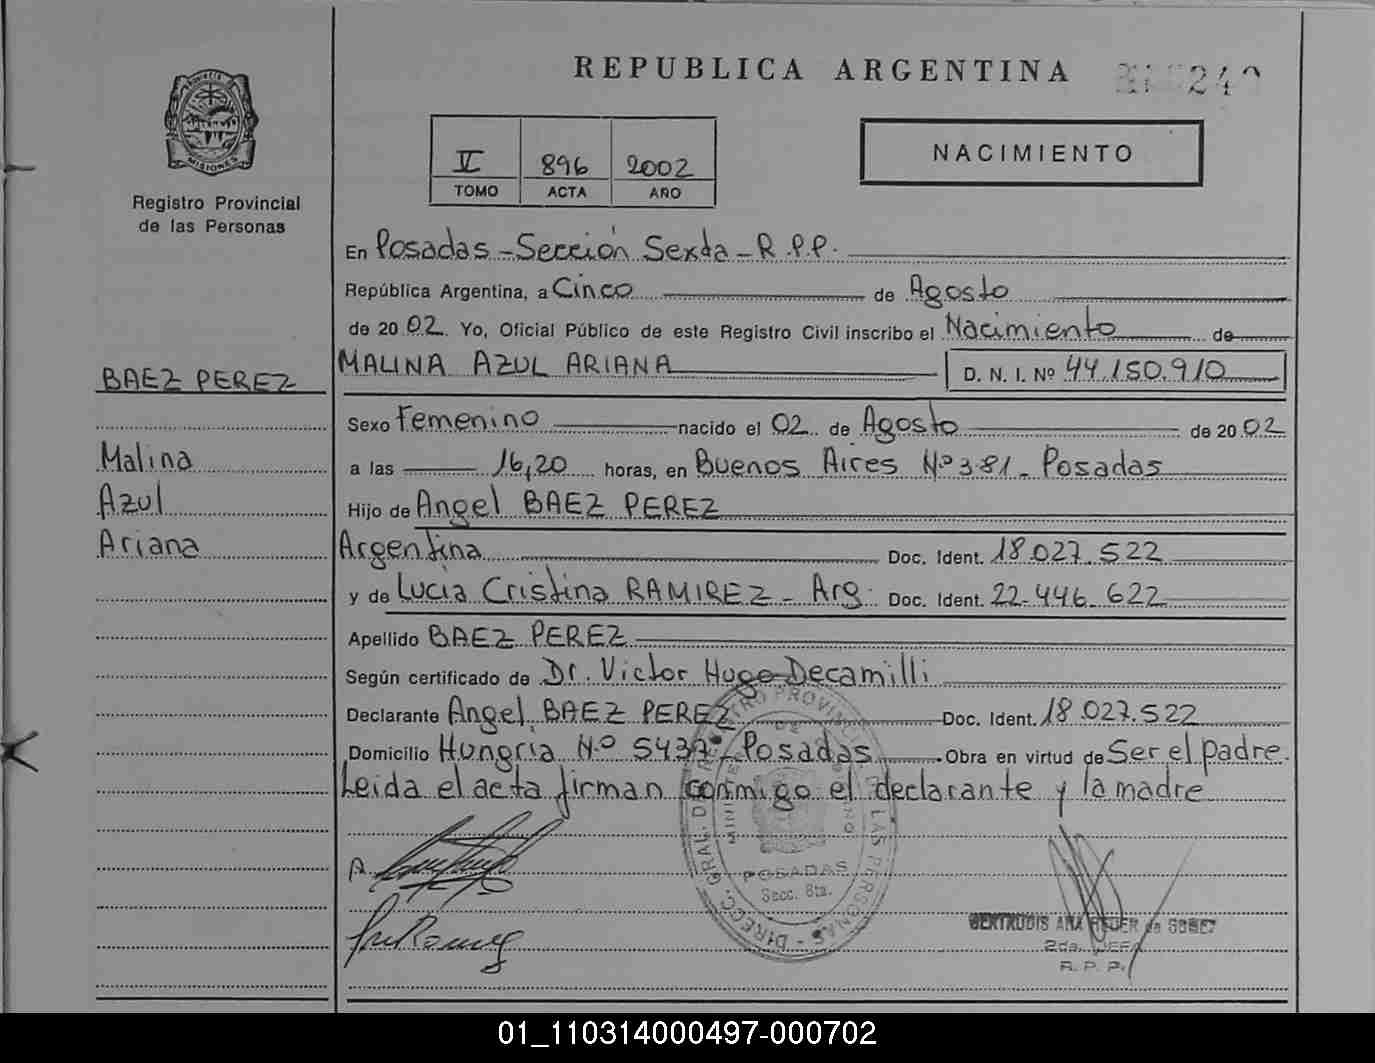 REPUBLICA ARGENTINA
240
MISIONES
Registro Provincial
de las Personas
V 896 2002
TOMO ACTA AÑO
NACIMIENTO
En Posadas - Sección Sexta - R.P.P.
República Argentina, a Cinco de Agosto
de 2002 Yo, Oficial Público de este Registro Civil inscribo el Nacimiento de
BAEZ PEREZ
MALINA AZUL ARIANA D. N. I. Nº 44.150.910
Sexo Femenino nacido el 02 de Agosto de 2002
Malina
a las 16,20 horas, en Buenos Aires Nº 381 - Posadas
Azul
Hijo de Angel BAEZ PEREZ
Ariana
Argentina Doc. Ident. 18.027.522
y de Lucia Cristina RAMIREZ - Arg. Doc. Ident. 22.446.622
Apellido BAEZ PEREZ
Según certificado de Dr. Victor Hugo Decamilli
Declarante Angel BAEZ PEREZ Doc. Ident. 18.027.522
Domicilio Hungria Nº 5437 - Posadas Obra en virtud de Ser el padre.
Leida el acta firman conmigo el declarante y la madre
DIRECC. GRAL. DEL REGISTRO PROVINCIAL DE LAS PERSONAS
POSADAS
Secc. 6ta.
GERTRUDIS ANA de GOMEZ
2da. JEFA
R. P. P.
01_110314000497-000702